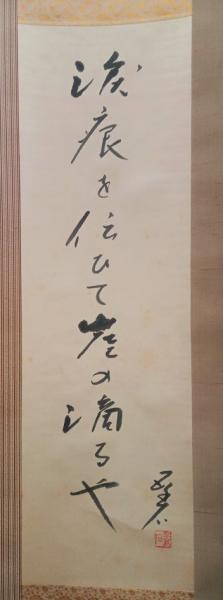 涙痕を伝ひて崖の滴るや